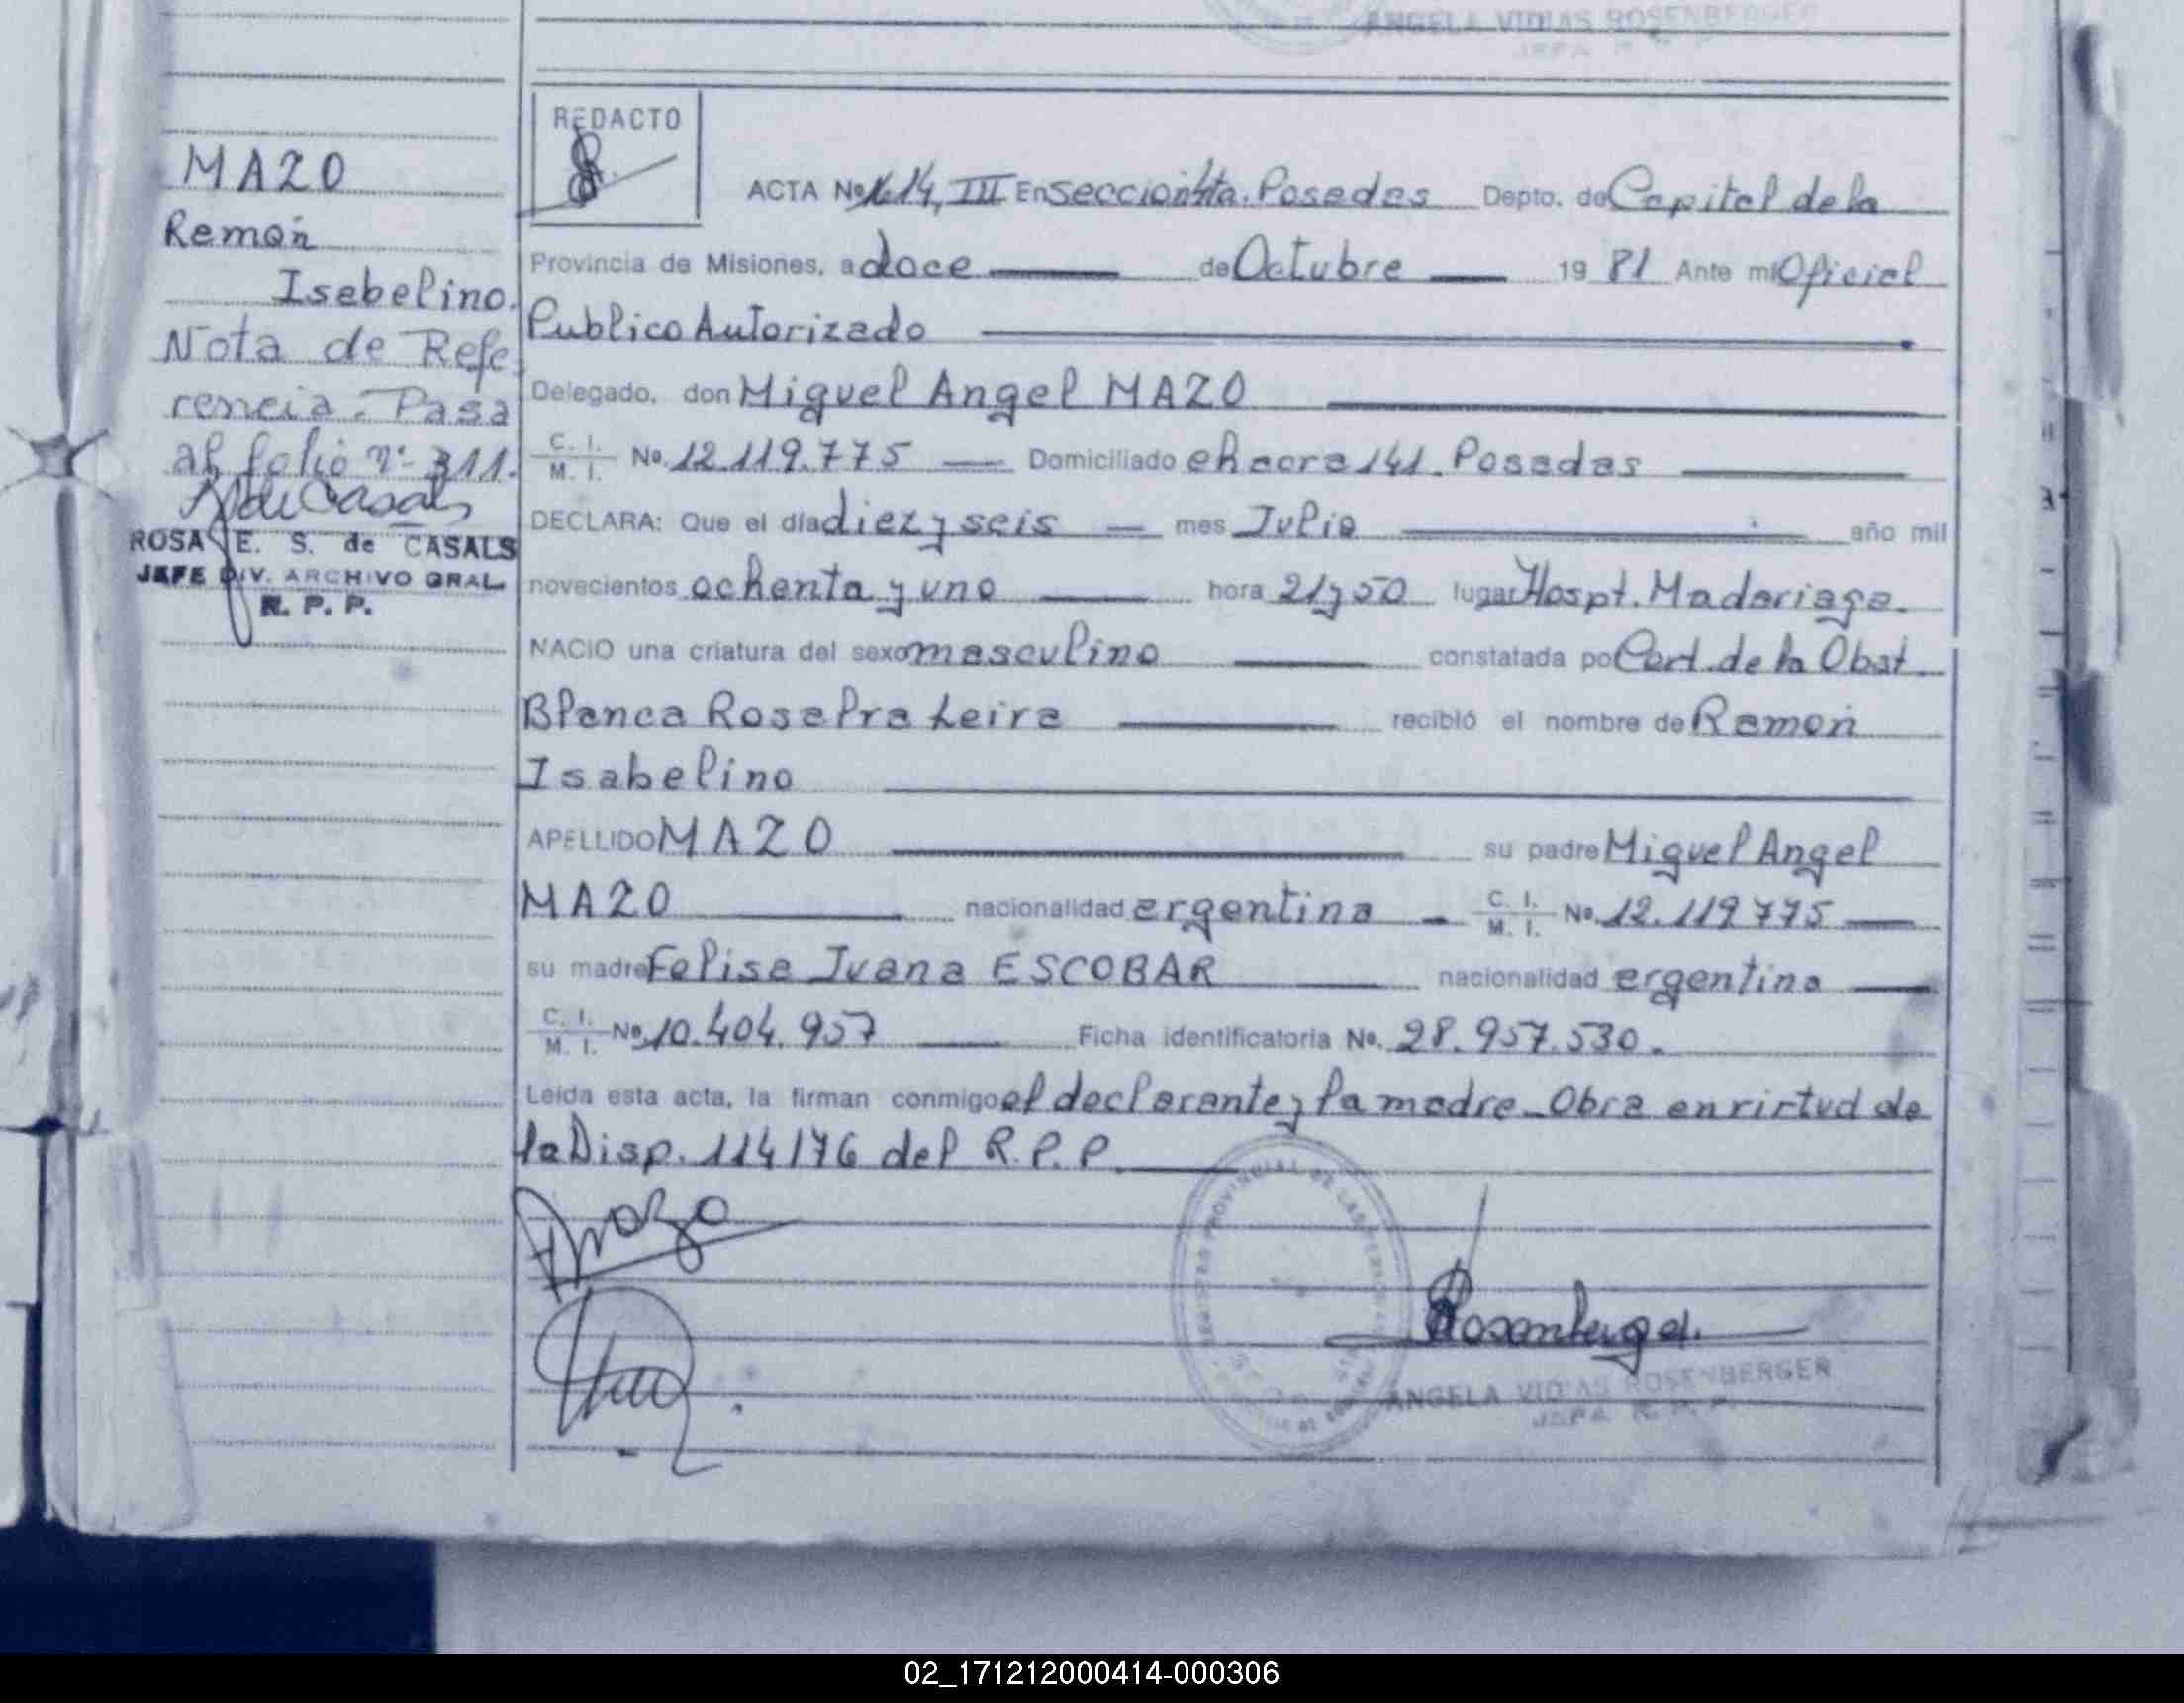 ANGELA VIDIAS ROSENBERGER
JEFA R. P. P.
REDACTO
MAZO
Ramón
Isabelino.
Nota de Refe
rencia. Pasa
al folio nº 311.
ROSA E. S. de CASALS
JEFE DIV. ARCHIVO GRAL.
R. P. P.
ACTA No. 1614, III En Sección 4ta. Posadas Depto. de Capital de la
Provincia de Misiones, a doce de Octubre 19 81 Ante mí Oficial
Publico Autorizado
Delegado, don Miguel Angel MAZO
C. I. M. I. No. 12.119.775 Domiciliado chacra 141. Posadas
DECLARA: Que el día diez y seis mes Julio año mil
novecientos ochenta y uno hora 21 y 50 lugar Hospt. Madariaga.
NACIO una criatura del sexo masculino constatada por Cert. de la Obst.
Blanca Rosa Pra Leira recibió el nombre de Ramón
Isabelino
APELLIDO MAZO su padre Miguel Angel
MAZO nacionalidad argentina - C. I. M. I. No. 12.119775
su madre Felisa Juana ESCOBAR nacionalidad argentina
C. I. M. I. No. 10.404.957 Ficha identificatoria No. 28.957.530.
Leída esta acta, la firman conmigo el declarante y la madre. Obra en virtud de
la Disp. 114/76 del R.P.P.
Mazo
Rosenberger
ANGELA VIDIAS ROSENBERGER
JEFA R. P. P.
02_171212000414-000306